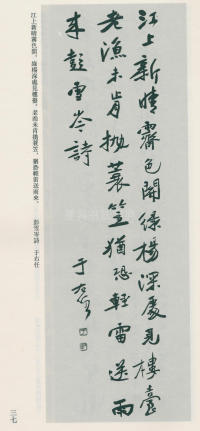 江上新晴霽色開綠楊深處見樓臺
老漁未肯拋蓑笠猶恐輕雷送雨
來彭雪岑詩
于右任
江上新晴霽色開，綠楊深處見樓臺。老漁未肯拋蓑笠，猶恐輕雷送雨來。
彭雪岑詩 于右任
三七